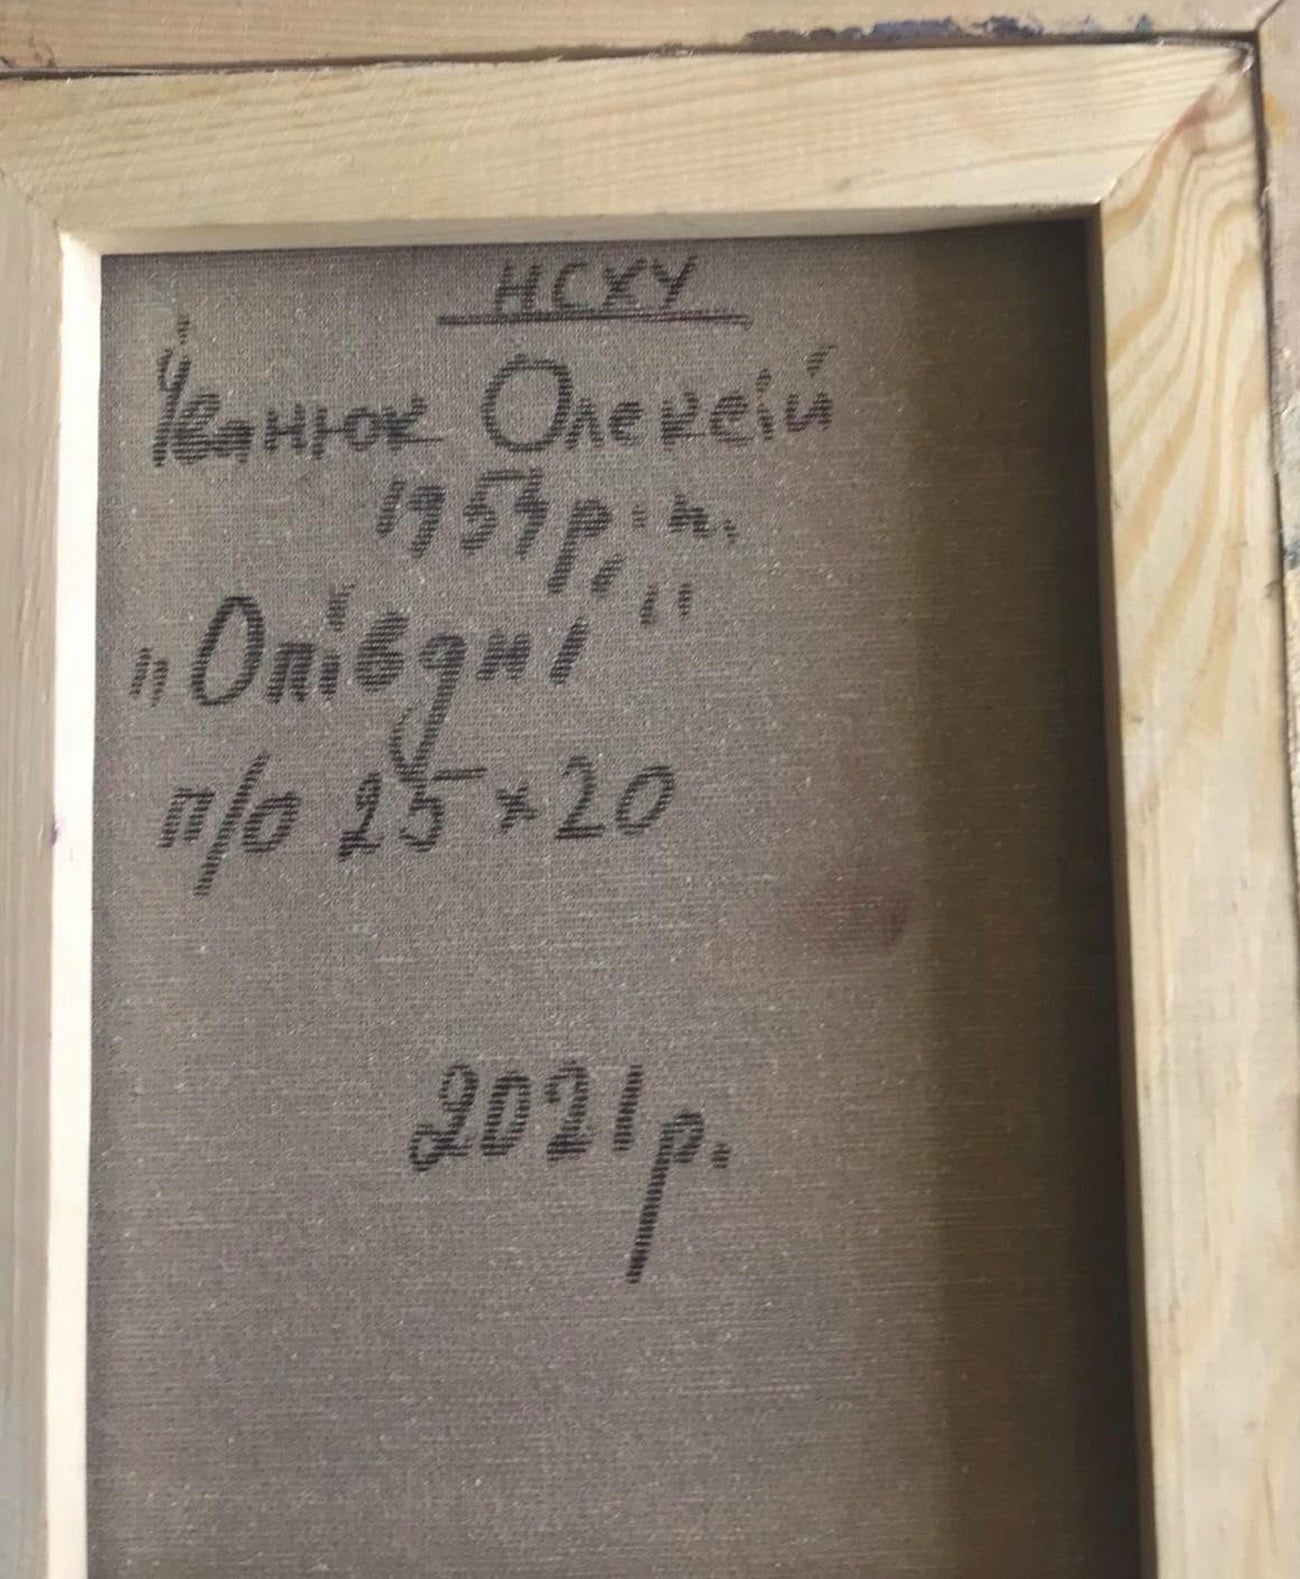 НСХУ
Іванюк Олексій
1954р.н.
„Опівдні"
п/о 25×20
2021р.